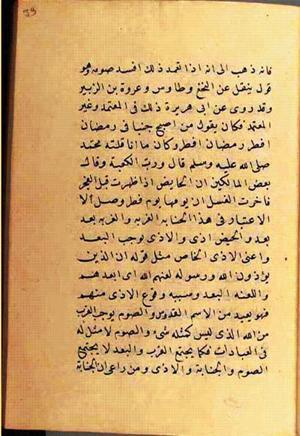 فانه ذهب الى انه اذا تعمد ذلك افسد صومه وهو
قول ينقل عن النخعي وطاوس وعروة بن الزبير
وقد روى عن ابى هريرة ذلك فى المعتمد وغير
المعتمد فكان يقول من اصبح جنبا فى رمضان
افطر رمضان افطر وكان ما انا قلته محمد
صلى الله عليه وسلم قال ورب الكعبة وقال
بعض المالكيين ان الحايض اذا ظهرت قبل الفجر
فاخرت الغسل ان يومها يوم فطر وصل الا
الاعتبار فى هذا الجنابة الغربه والغربه بعد
بعد والحيض اذى والاذى يوجب البعد
واعنى الاذى الخاص مثل قوله ان الذين
يؤذون الله ورسوله لعنهم الله اى ابعدهم
واللعنة البعد وسببه وقوع الاذى منهم
فهو بعيد من الاسم القدوس والصوم يوجب القرب
من الله الذى ليس كمثله شئ والصوم لا مثل له
فى العبادات فكما يجتمع القرب والبعد لا يجتمع
الصوم والجنابة والاذى ومن راعى ان الجنابة